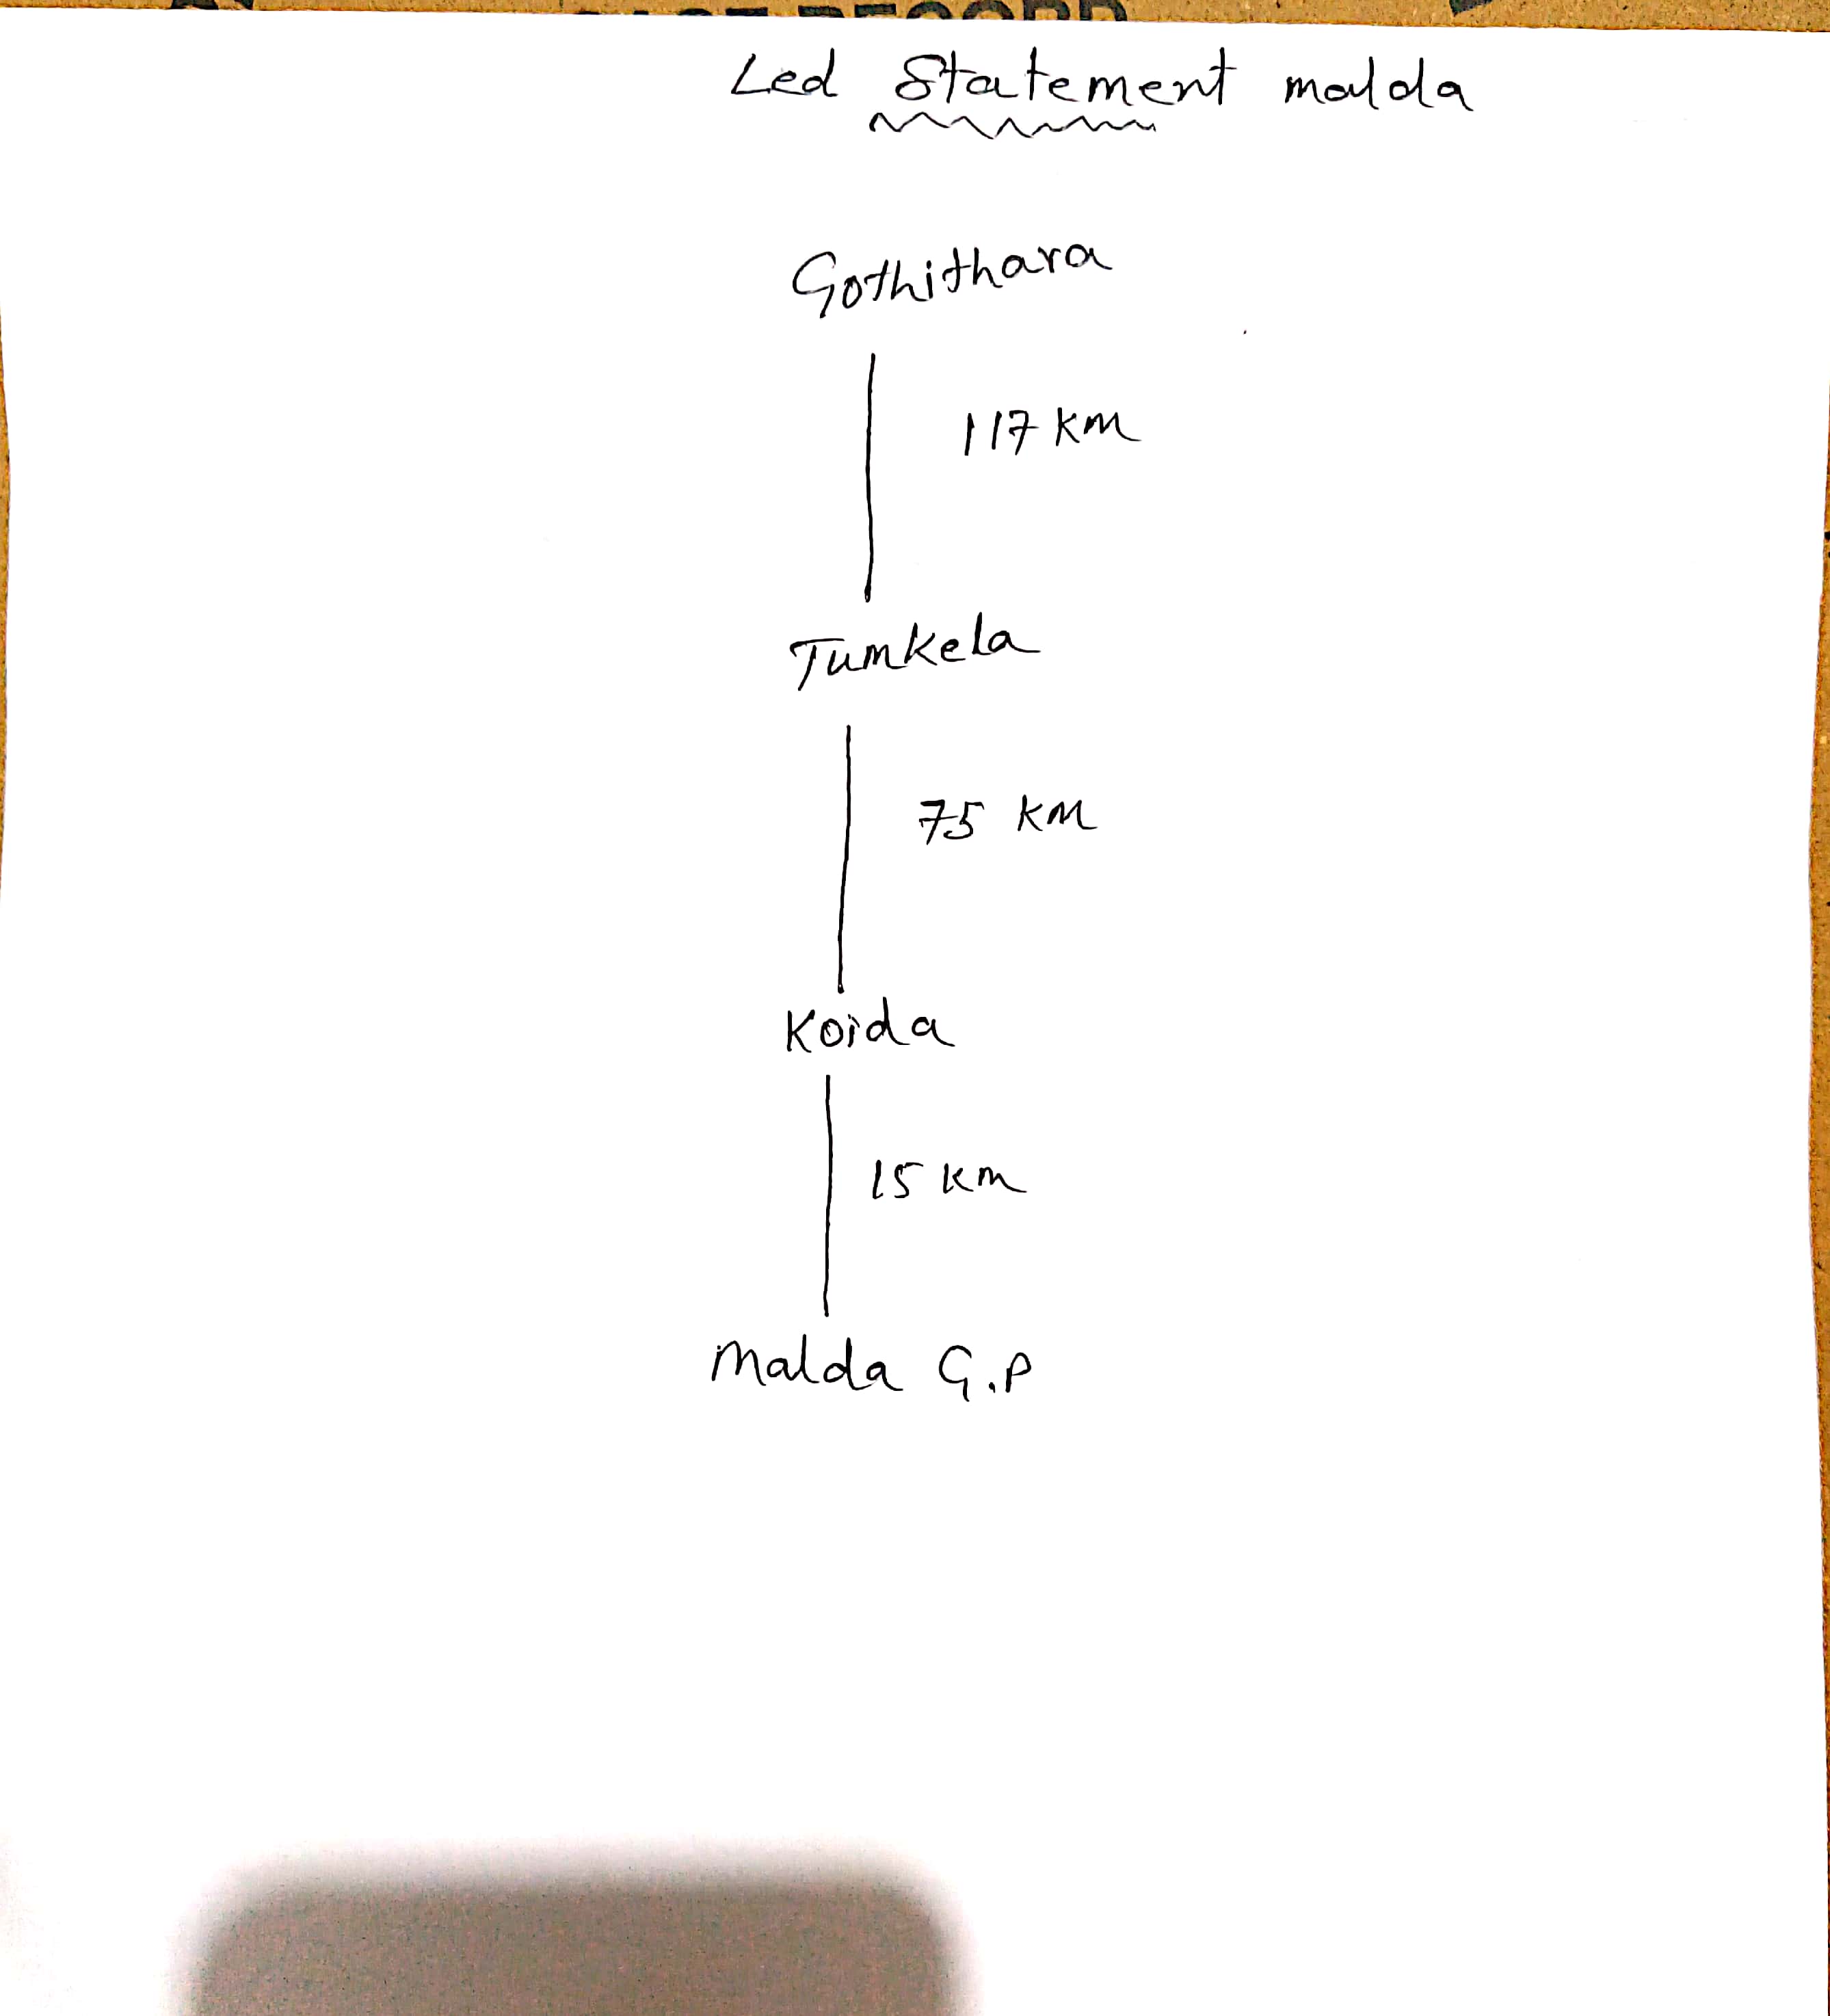 Led Statement malda
Gothithara
117 km
Tumkela
75 KM
Koida
15 km
Malda G.P